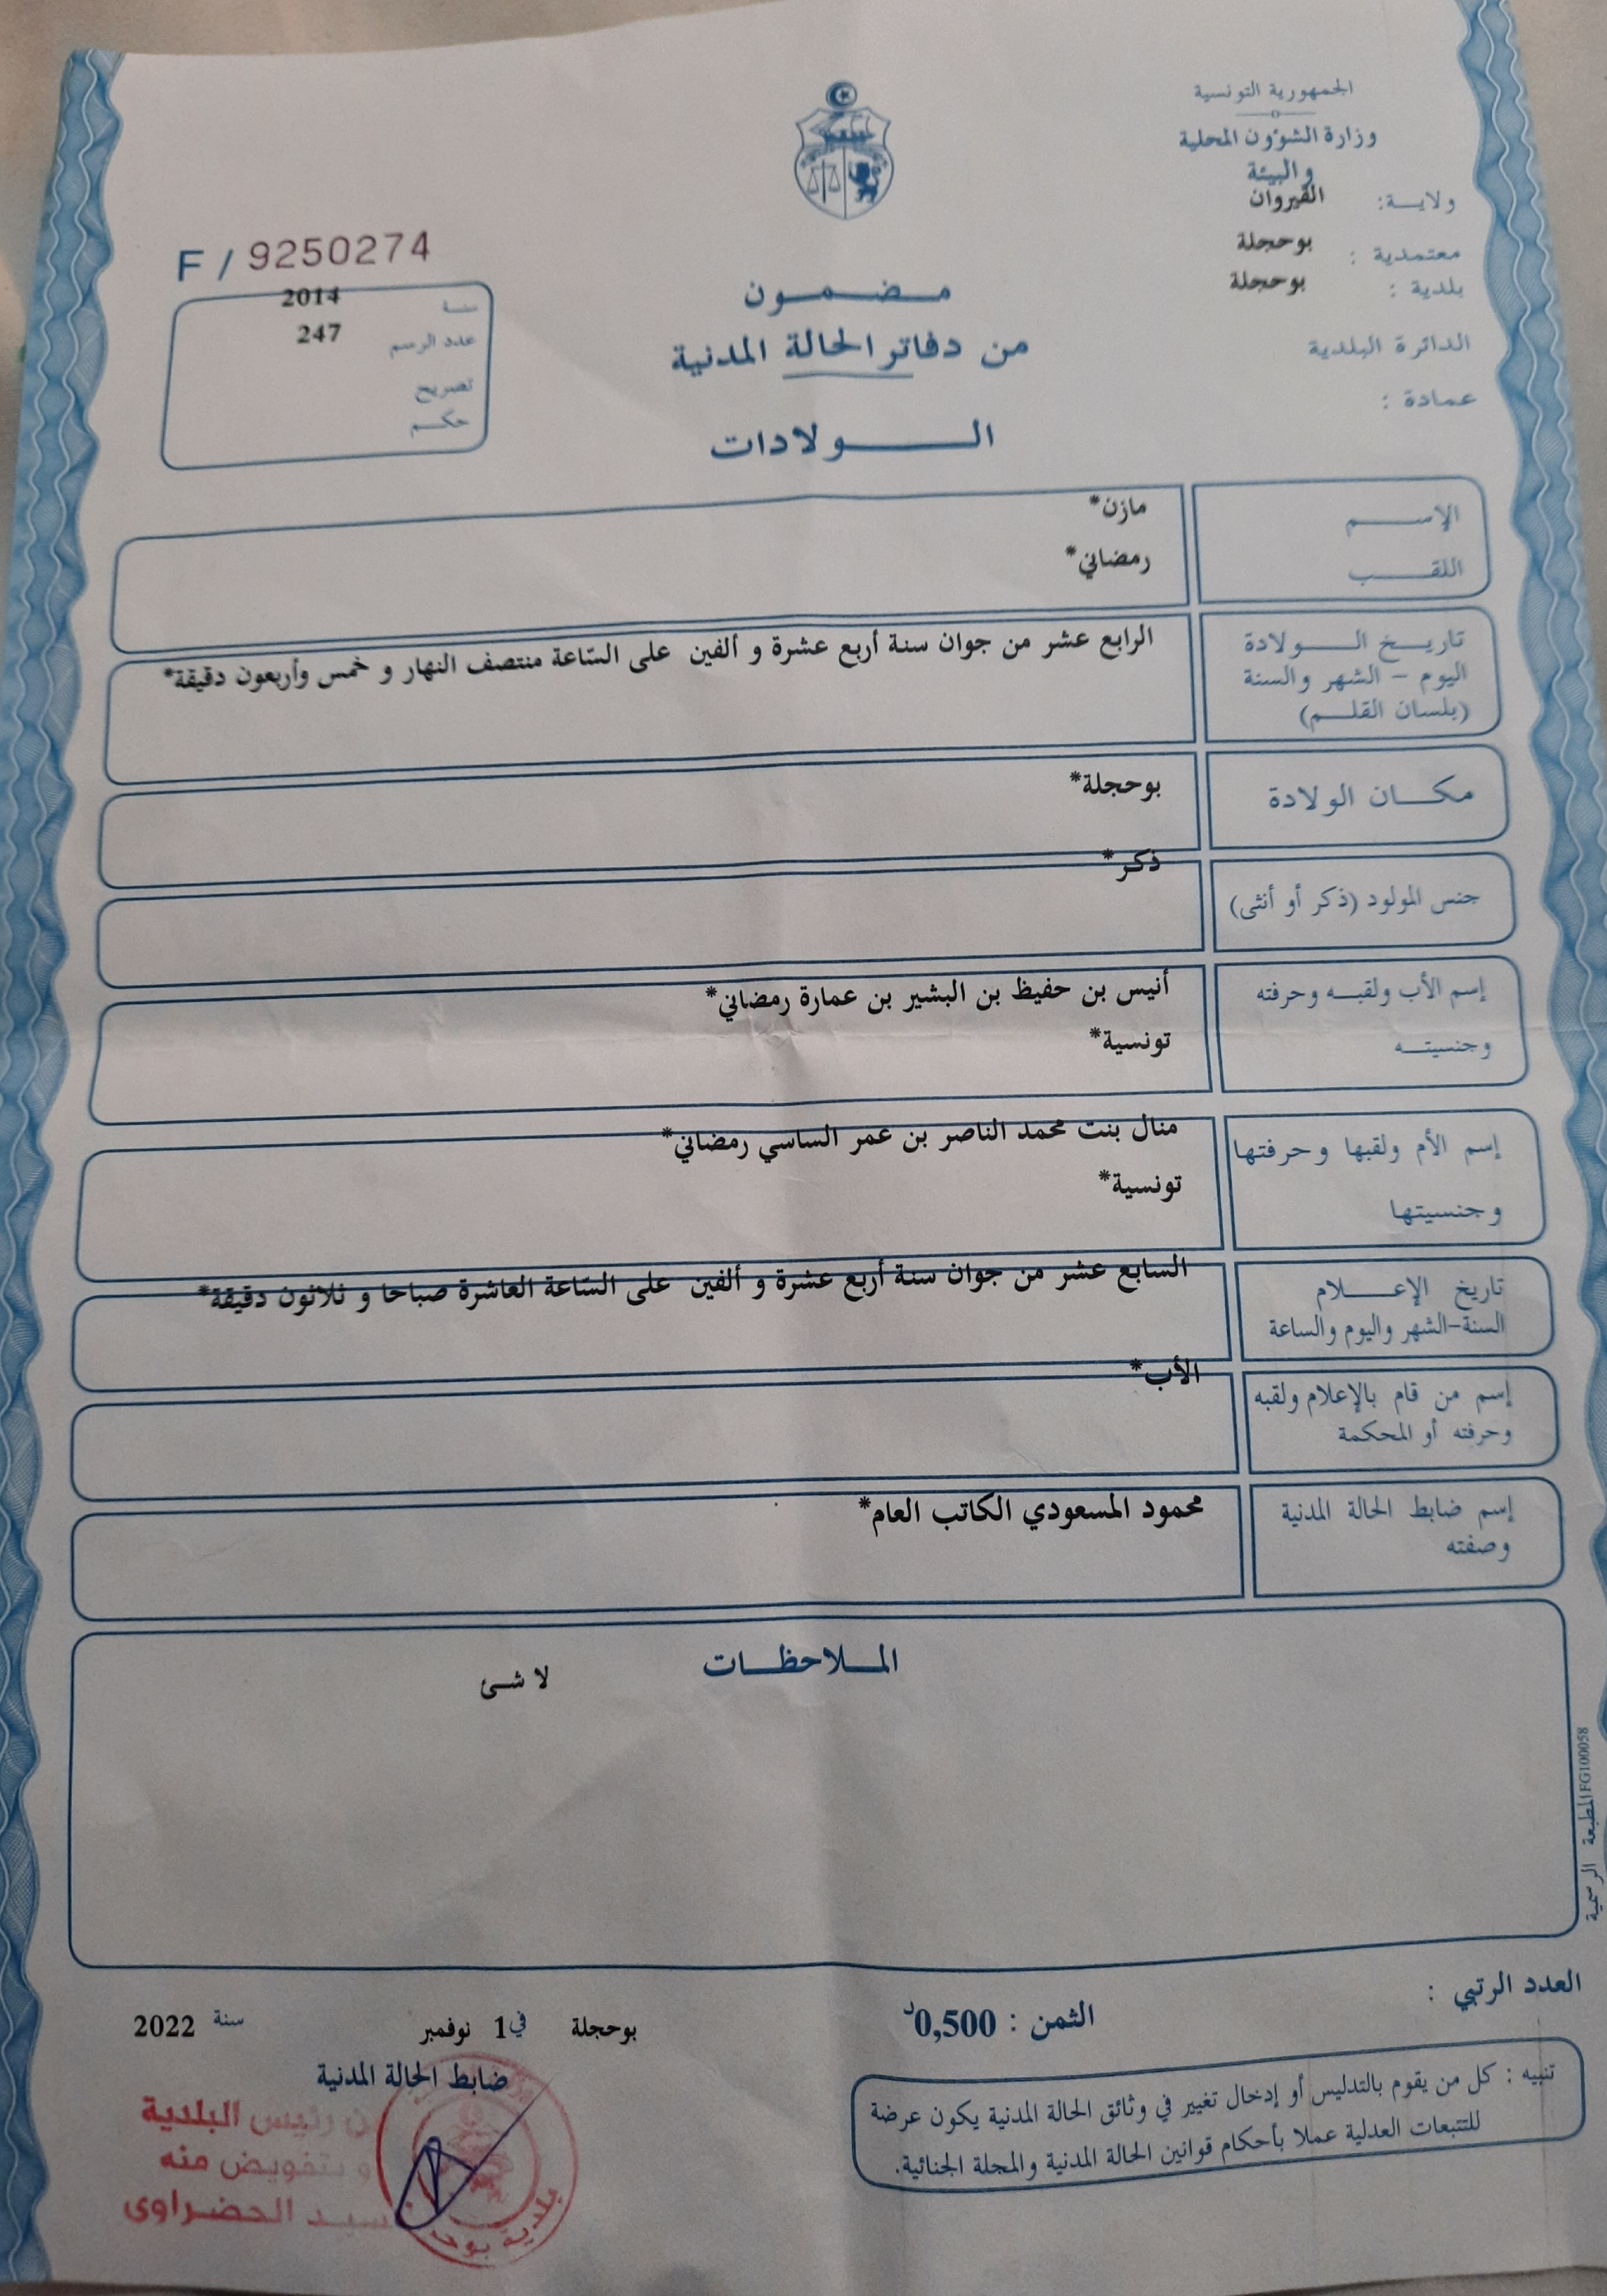 الجمهورية التونسية
وزارة الشؤون المحلية
والبيئة
ولاية: القيروان
معتمدية : بوحجلة
بلدية : بوحجلة
الدائرة البلدية
عمادة :
F / 9250274
سنة 2014
عدد الرسم 247
تصريح
حكم
مضمون
من دفاتر الحالة المدنية
الولادات
الإسم مازن*
اللقب رمضاني*
تاريخ الولادة
اليوم - الشهر والسنة
(بلسان القلم)
الرابع عشر من جوان سنة أربع عشرة و ألفين على السّاعة منتصف النهار و خمس وأربعون دقيقة*
مكان الولادة بوحجلة*
جنس المولود (ذكر أو أنثى) ذكر*
إسم الأب ولقبه وحرفته أنيس بن حفيظ بن البشير بن عمارة رمضاني*
وجنسيته تونسية*
إسم الأم ولقبها وحرفتها منال بنت محمد الناصر بن عمر الساسي رمضاني*
وجنسيتها تونسية*
تاريخ الإعلام
السنة-الشهر واليوم والساعة
السابع عشر من جوان سنة أربع عشرة و ألفين على السّاعة العاشرة صباحا و ثلاثون دقيقة*
إسم من قام بالإعلام ولقبه
وحرفته أو المحكمة
الأب*
إسم ضابط الحالة المدنية
وصفته
محمود المسعودي الكاتب العام*
الملاحظات
لا شئ
المطبعة الرسمية FG100058
العدد الرتبي :
الثمن : 0,500د
بوحجلة في 1 نوفمبر سنة 2022
ضابط الحالة المدنية
رئيس البلدية
و بتفويض منه
الحضراوي
بلدية بوح
تنبيه : كل من يقوم بالتدليس أو إدخال تغيير في وثائق الحالة المدنية يكون عرضة
للتتبعات العدلية عملا بأحكام قوانين الحالة المدنية والمجلة الجنائية.